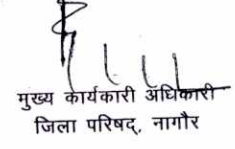 मुख्य कार्यकारी अधिकारी
जिला परिषद्, नागौर